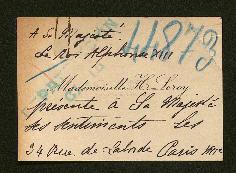 A Sa Majesté
Le Roi Alphonse XIII
44873
Mademoiselle H. Leroy
présente à Sa Majesté
ses sentiments les
34 Rue de Laborde Paris